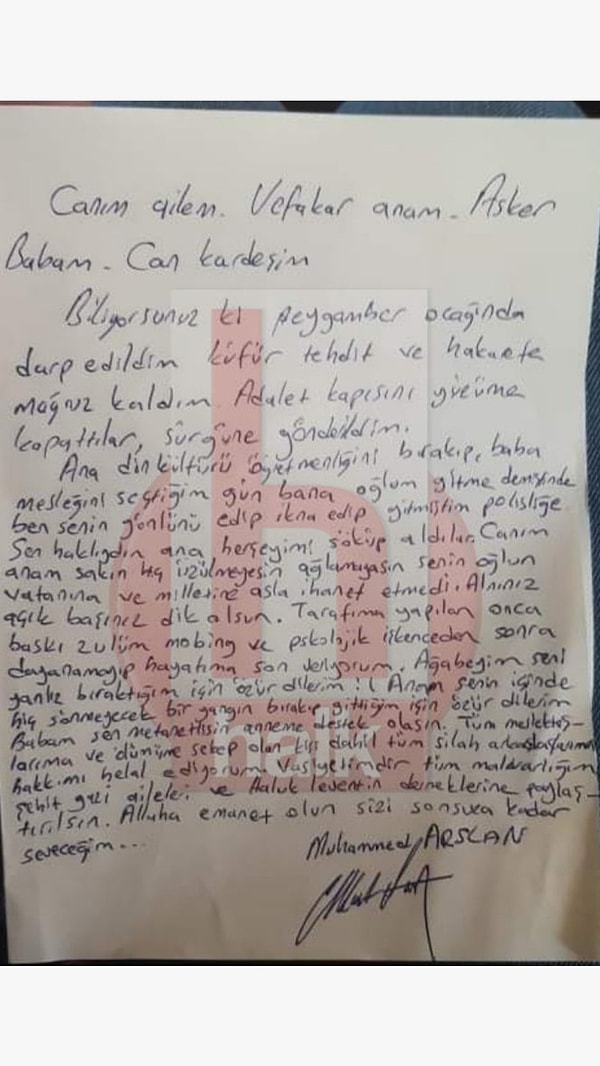 Canım ailem. Vefakar anam. Asker
Babam. Can kardeşim
Biliyorsunuz ki peygamber ocağında
darp edildim küfür tehdit ve hakarete
mağruz kaldım. Adalet kapısını yüzüme
kapattılar, sürgüne gönderildim.
Ana din kültürü öğretmenliğini bırakıp, baba
mesleğini seçtiğim gün bana oğlum gitme demiştinde
ben senin gönlünü edip ikna edip gitmiştim polisliğe
Sen haklıydın ana herşeyimi söküp aldılar. Canım
anam sakın hiç üzülmeyesin ağlamayasın senin oğlun
vatanına ve milletine asla ihanet etmedi. Alnınız
açık başınız dik olsun. Tarafıma yapılan onca
baskı zulüm mobing ve pskolojik işkenceden sonra
dayanamayıp hayatıma son veriyorum. Ağabeyim seni
yanlız bıraktığım için özür dilerim! Anam senin içinde
hiç sönmeyecek bir yangın bırakıp gittiğim için özür dilerim
Babam sen metanetlisin anneme destek olasın. Tüm meslektaş-
larıma ve ölümüme sebep olan kişi dahil tüm silah arkadaşlarıma
hakkımı helal ediyorum. Vasiyetimdir tüm malvarlığım
şehit gazi aileleri ve Haluk leventin derneklerine paylaş-
tırılsın. Allaha emanet olun sizi sonsuza kadar
seveceğim...
Muhammed ARSLAN
h
halk